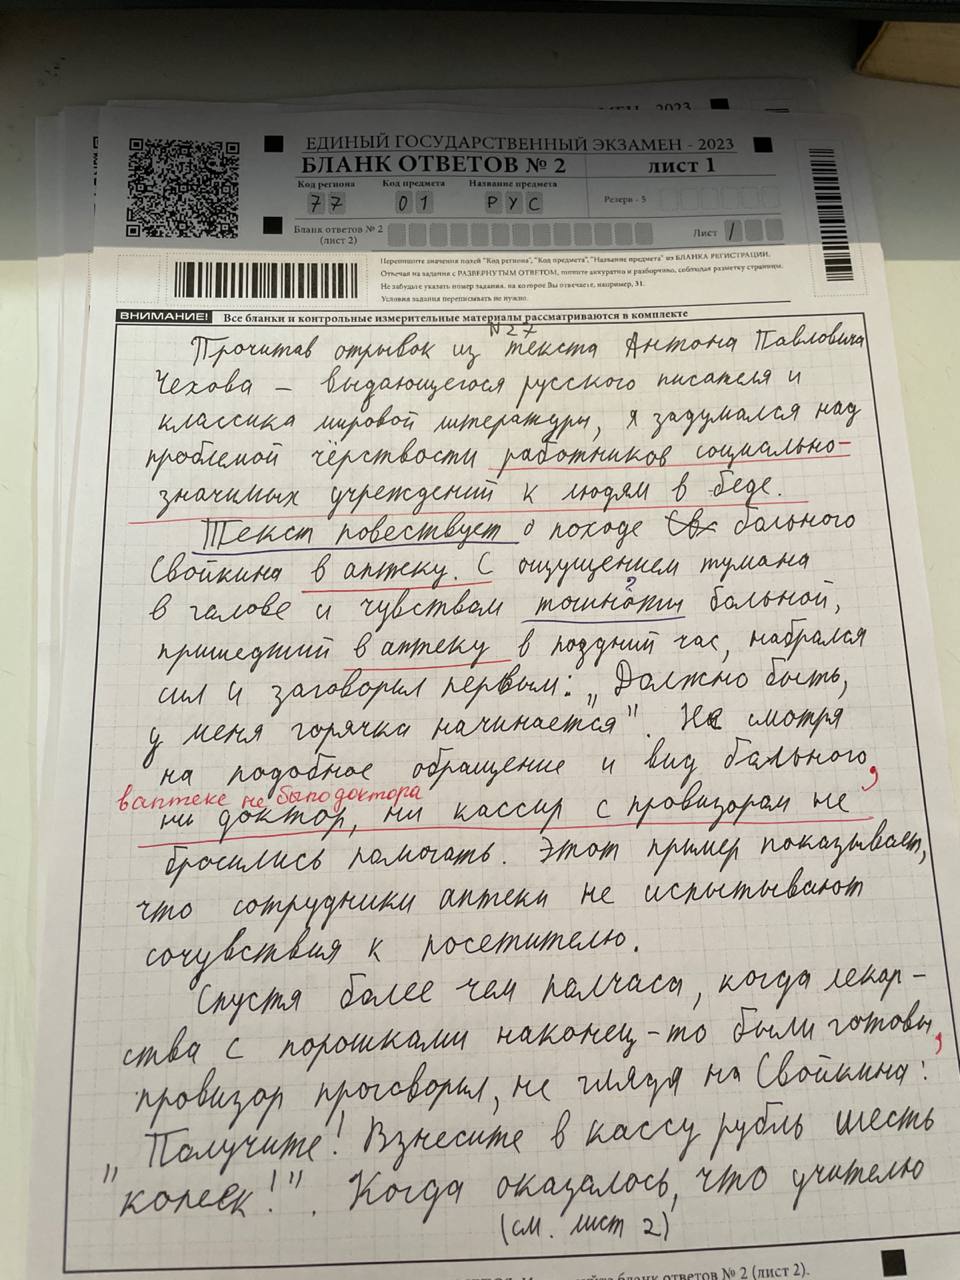 МЕН - 2023
ЕДИНЫЙ ГОСУДАРСТВЕННЫЙ ЭКЗАМЕН - 2023
БЛАНК ОТВЕТОВ № 2 лист 1
Код региона Код предмета Название предмета
77 01 РУС Резерв - 5
Бланк ответов № 2 (лист 2) Лист 1
Перепишите значения полей "Код региона", "Код предмета", "Название предмета" из БЛАНКА РЕГИСТРАЦИИ.
Отвечая на задания с РАЗВЕРНУТЫМ ОТВЕТОМ, пишите аккуратно и разборчиво, соблюдая разметку страницы.
Не забудьте указать номер задания, на которое Вы отвечаете, например, 31.
Условия задания переписывать не нужно.
ВНИМАНИЕ! Все бланки и контрольные измерительные материалы рассматриваются в комплекте
N27
Прочитав отрывок из текста Антона Павловича
Чехова – выдающегося русского писателя и
классика мировой литературы, я задумался над
проблемой чёрствости работников социально-
значимых учреждений к людям в беде.
Текст повествует о походе больного
Свойкина в аптеку. С ощущением тумана
в галове и чувствам больной,
пришедший в аптеку в поздний час, набрался
сил и заговорил первым: „Должно быть,
у меня горячка начинается". Не смотря
на подобное обращение и вид больного,
в аптеке не было доктора
ни доктор, ни кассир с провизорам не
бросились помогать. Этот пример показывает,
что сотрудники аптеки не испытывают
сочувствия к посетителю.
Спустя более чем палчаса, когда лекар-
ства с порошками наконец-то были готовы,
провизор проговорил, не глядя на Свойкина:
„Получите! Взнесите в кассу рубль шесть
копеек!". Когда оказалось, что учителю
(см. лист 2)
бланк ответов № 2 (лист 2).